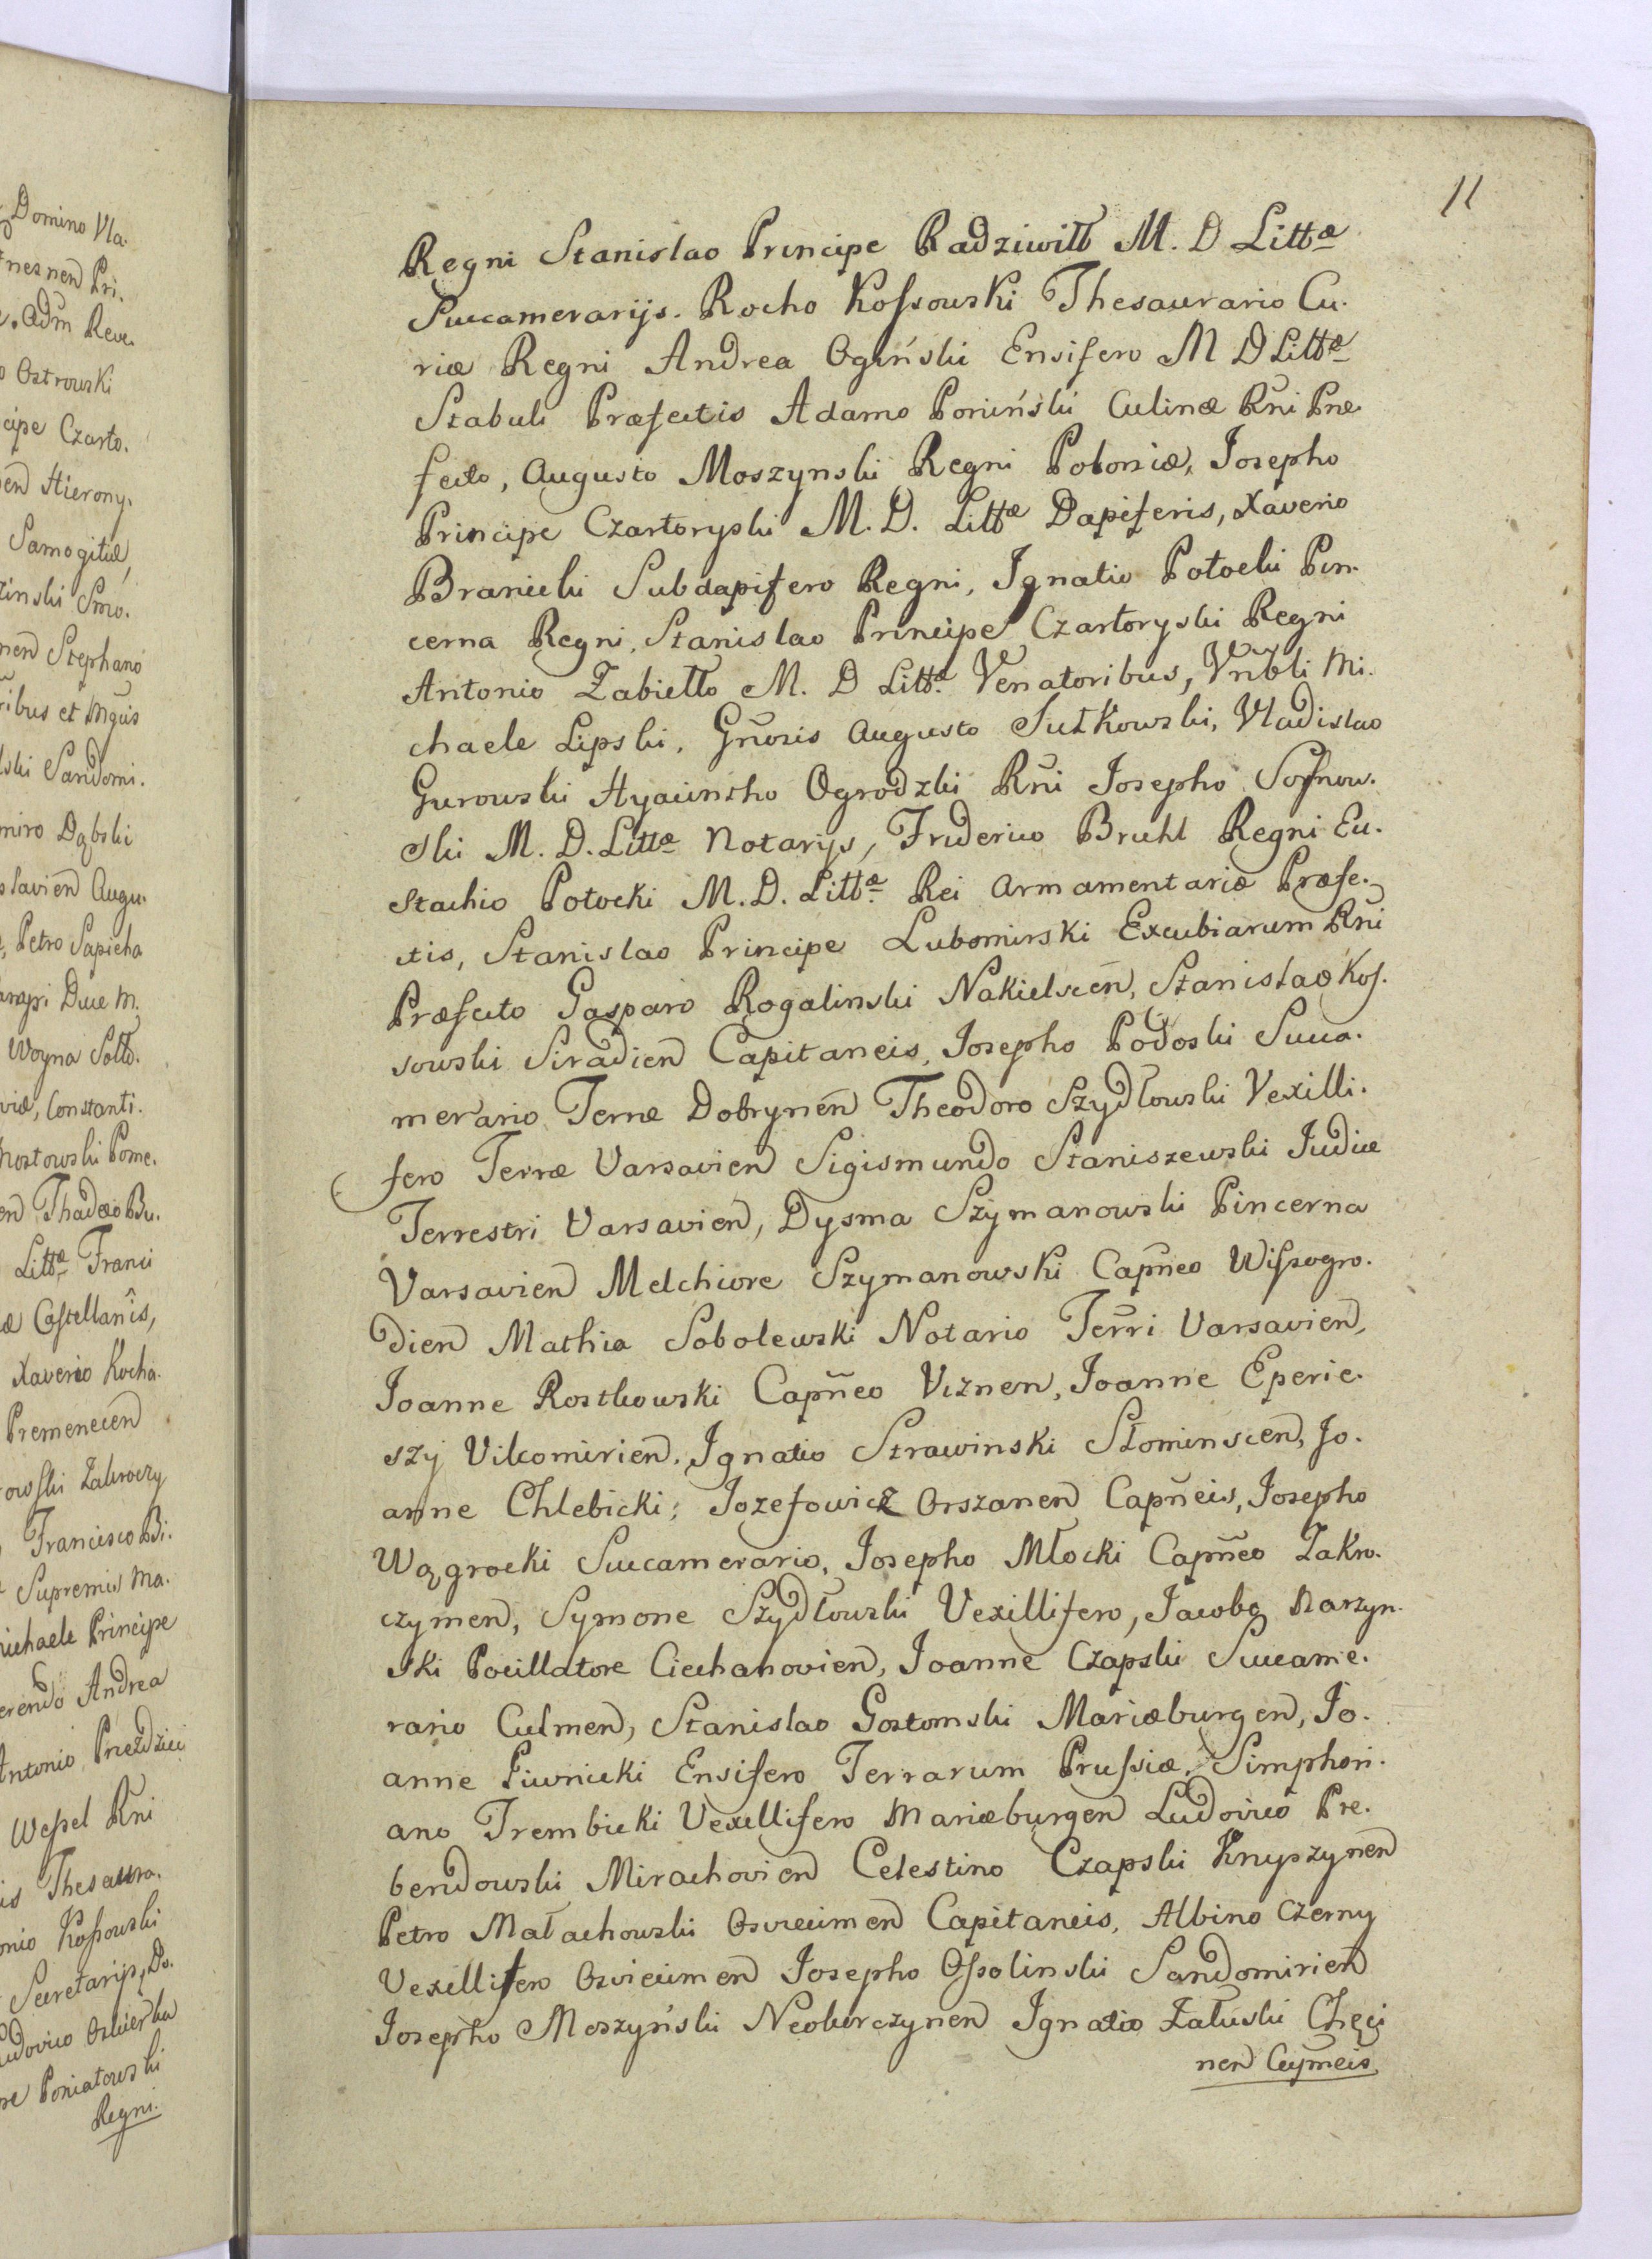 Domino Vla.
nesnen̄ Pri.
Adm Reve.
Ostrowski
cipe Czarto.
en̄ Hierony.
Samogitiæ,
zinski Smo.
nen̄ Stephano
ribus et Mg̃cis
lski Sandomi.
miro Dąbski
slavien̄ Augu.
Petro Sapieha
Duce M.
Woyna Sollo.
viæ, Constanti.
Mostowski Pome.
en̄ Thadæo Bu.
Littæ Franci
æ Castellanis,
Xaverio Kocha.
Premenecen̄
owski Zakroczy
Francisco Bi.
Supremis Ma.
Michaele Principe
erendo Andrea
Antonio Przeździeci
Wessel Rñi
is Thesaura.
onio Kossowski
Secretarijs, Do.
Ludovico Oskierka
re Poniatowski
Regni.
11
Regni Stanislao Principe Radziwiłł M. D Littæ
Succamerarijs. Rocho Kossowski Thesaurario Cu.
riæ Regni Andrea Ogiński Ensifero M D Littæ
Stabuli Præfectis Adamo Poniński Culinæ Rñi Præ.
fecto, Augusto Moszynski Regni Poloniæ, Josepho
Principe Czartoryski M. D. Littæ Dapiferis, Xaverio
Branicki Subdapifero Regni, Ignatio Potocki Pin.
cerna Regni, Stanislao Principe Czartoryski Regni
Antonio Zabiełło M. D Littæ Venatoribus, Vrñbli Mi.
chaele Lipski, Gñosis Augusto Sułkowski, Vladislao
Gurowski Hyacintho Ogrodzki Rñi Josepho Sosnow.
ski M. D. Littæ Notarijs, Friderico Bruhl Regni Eu.
stachio Potocki M. D. Littæ Rei Armamentariæ Præfe.
ctis, Stanislao Principe Lubomirski Excubiarum Rñi
Præfecto Gasparo Rogalinski Nakielscen̄, Stanislao Kos.
sowski Siradien̄ Capitaneis, Josepho Podoski Succa.
merario Terræ Dobrynen̄ Theodoro Szydłowski Vexilli.
fero Terræ Varsavien̄ Sigismundo Staniszewski Judice
Terrestri Varsavien̄, Dysma Szymanowski Pincerna
Varsavien̄ Melchiore Szymanowski Capñeo Wissogro.
dien̄ Mathia Sobolewski Notario Terri Varsavien̄,
Joanne Rostkowski Capñeo Viznen, Joanne Eperie.
szy Vilcomirien̄. Ignatio Strawinski Słominscen̄, Jo.
anne Chlebicki; Jozefowicz Orszanen̄ Capñeis, Josepho
Wągrocki Succamerario, Josepho Młocki Capñeo Zakro.
czymen̄, Symone Szydłowski Vexillifero, Jacobo Narzyn.
ski Pocillatore Ciechanovien̄, Joanne Czapski Succame.
rario Culmen̄, Stanislao Gostomski Mariæburgen̄, Jo.
anne Piwnicki Ensifero Terrarum Prussiæ, Simphori.
ano Trembicki Vexillifero Mariæburgen̄ Ludovico Pre.
bendowski Mirachovien̄ Celestino Czapski Knyszynen̄
Petro Małachowski Osvecimen̄ Capitaneis, Albino Czerny
Vexillifero Osviecimen̄ Josepho Ossolinski Sandomirien̄
Josepho Moszyński Neokorczynen̄ Ignatio Załuski Chęci
nen̄ Cap̃neis